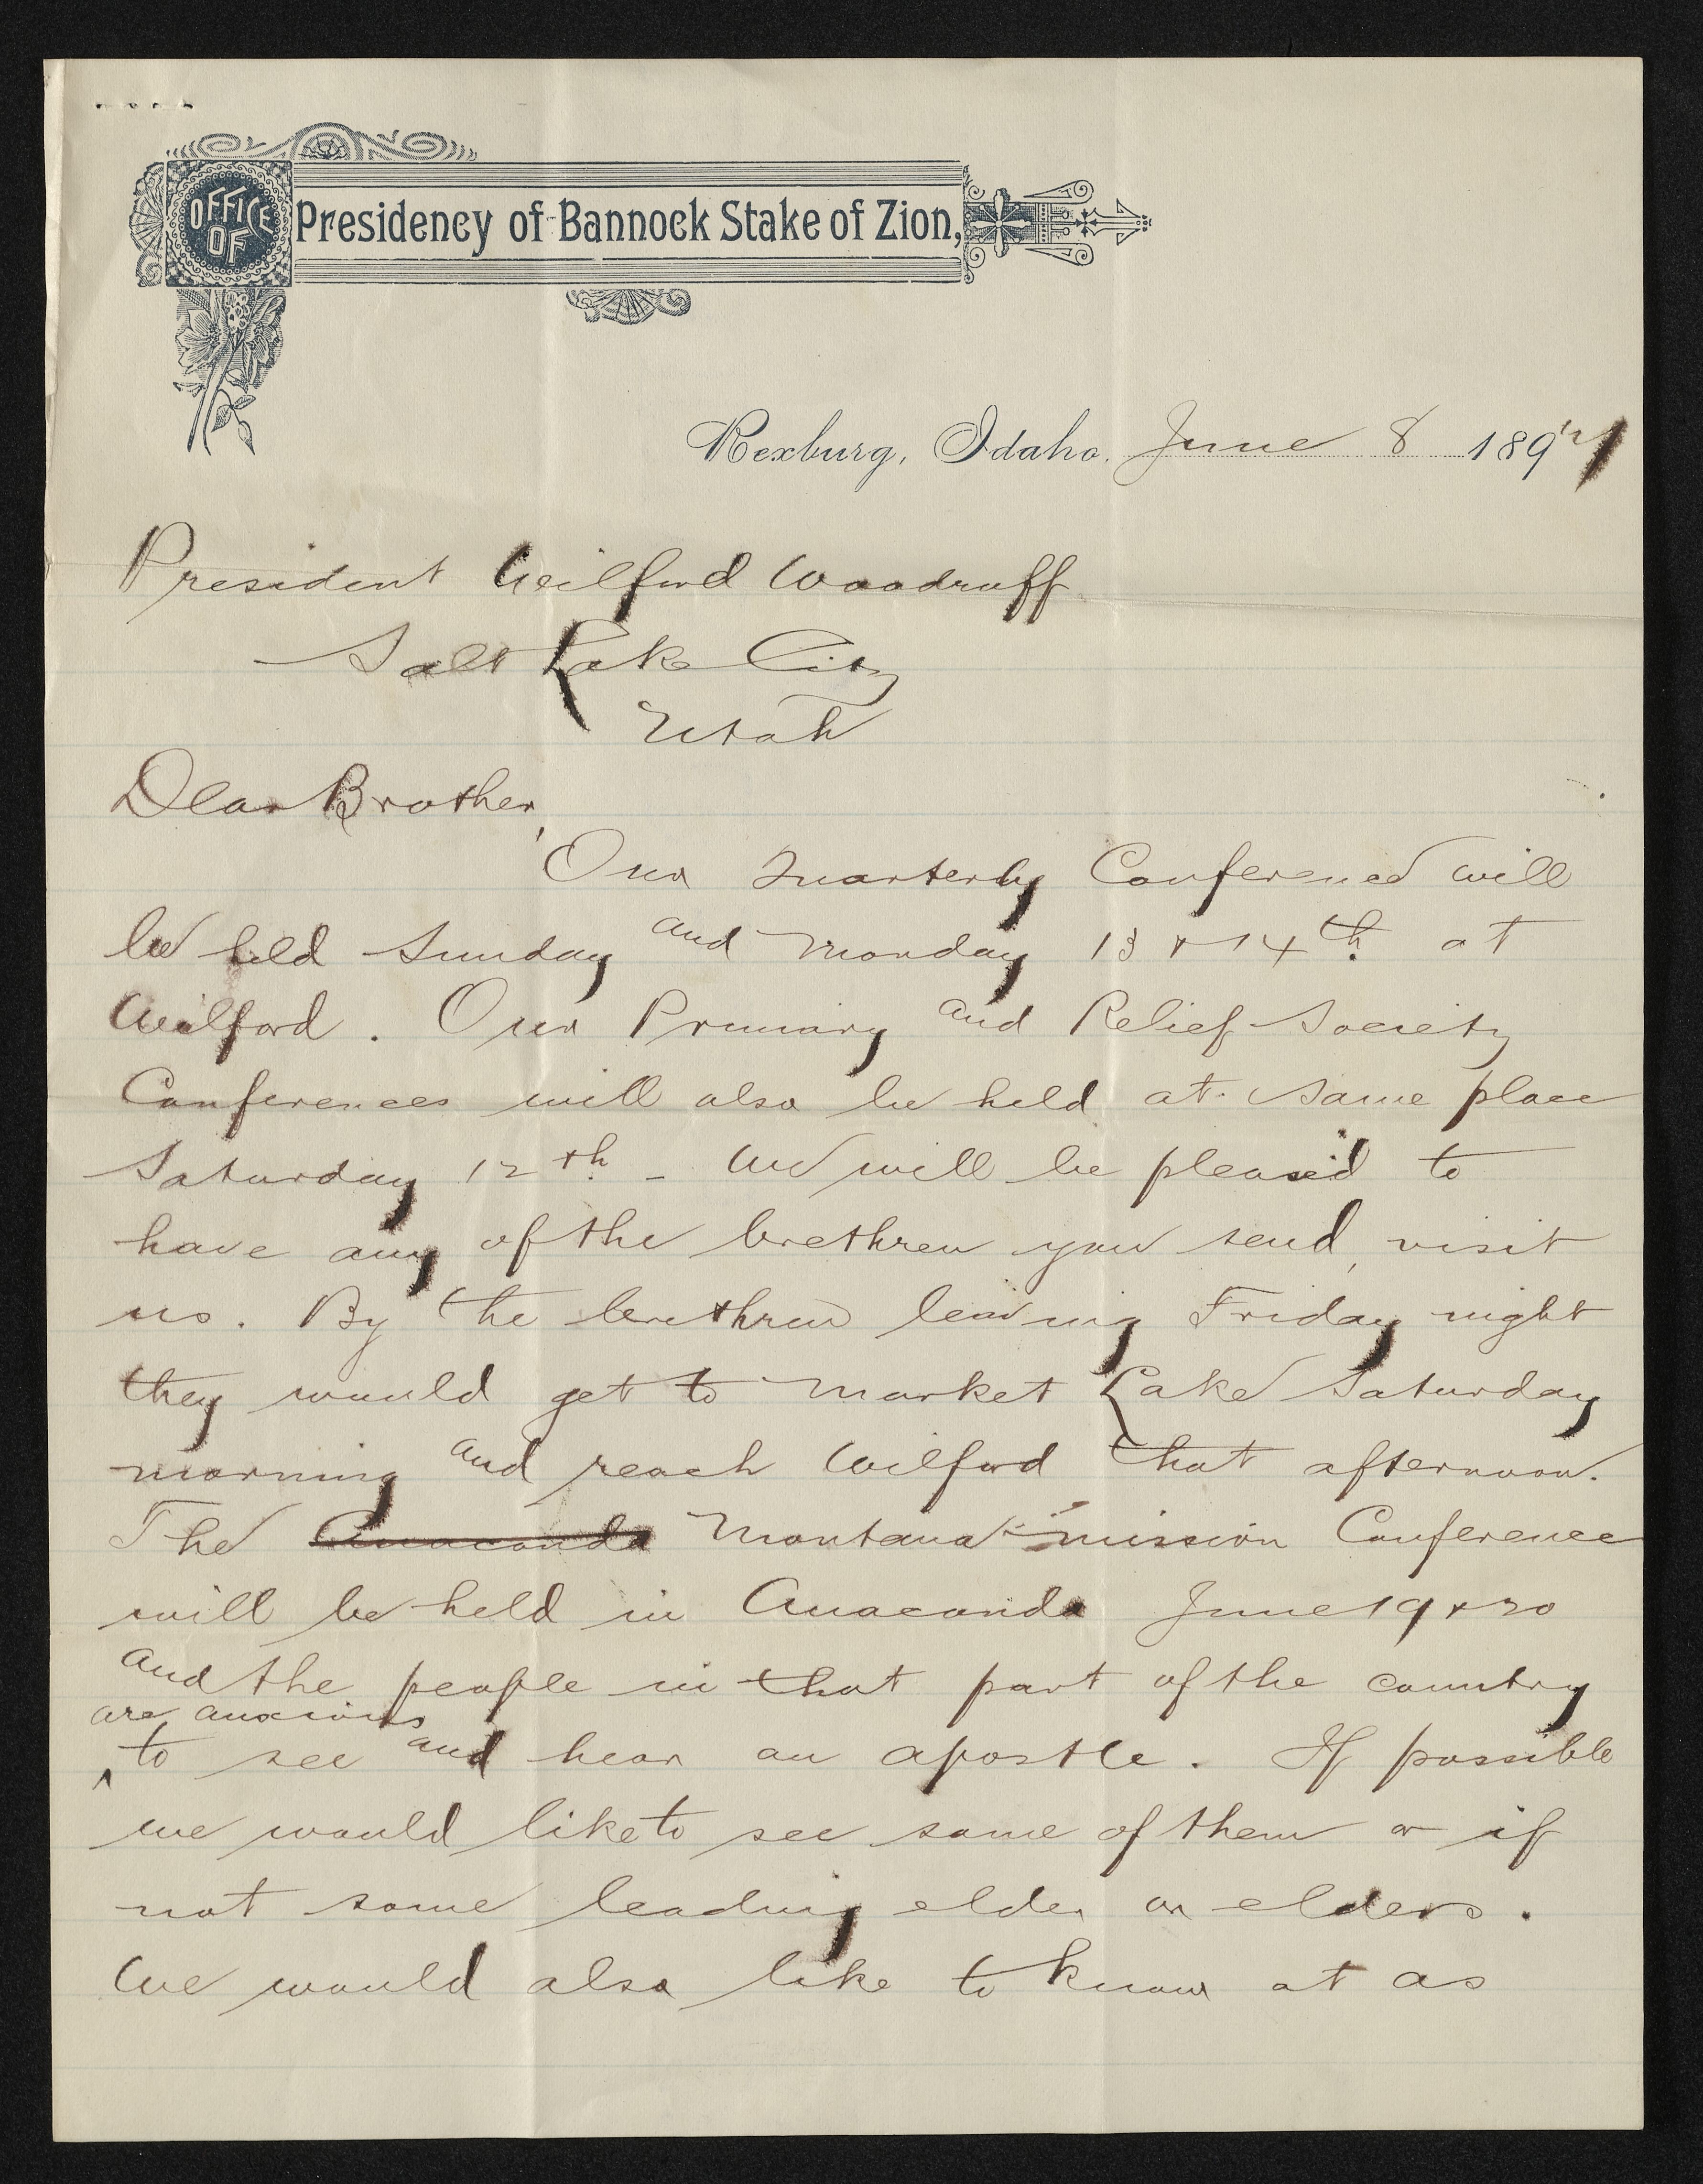 OFFICE OF Presidency of Bannock Stake of Zion,
Rexburg, Idaho, June 8 1897
President Wilford Woodruff
Salt Lake City
Utah
Dear Brother,
Our Quarterly Conference will
be held Sunday and Monday 13 & 14th. at
Wilford. Our Primary and Relief Society
Conferences will also be held at same place
Saturday 12th. - We will be pleased to
have any of the brethren you send, visit
us. By the brethren leaving Friday night
they would get to Market Lake Saturday
morning and reach Wilford that afternoon.
The Anaconda Montana mission Conference
will be held in Anaconda June 19 & 20
and the people in that part of the country
are anxious
to see and hear an apostle. If possible
we would like to see some of them or if
not some leading elder or elders.
We would also like to know at as